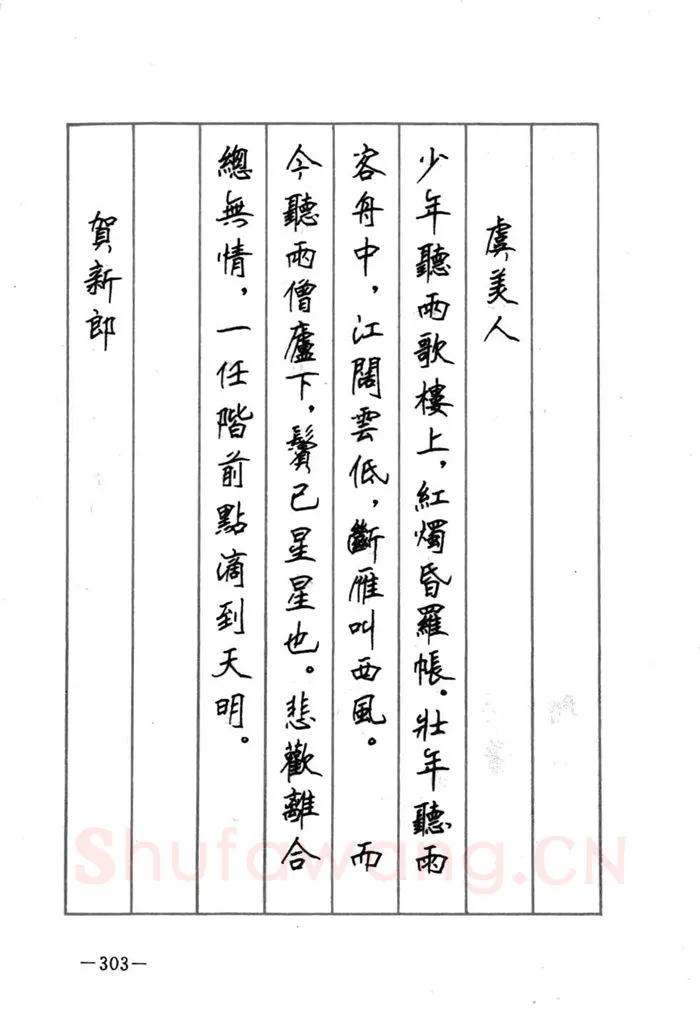 虞美人
少年聽雨歌樓上，紅燭昏羅帳。壯年聽雨
客舟中，江闊雲低，斷雁叫西風。　　而
今聽雨僧廬下，鬢已星星也。悲歡離合
總無情，一任階前點滴到天明。
賀新郎
Shufawang.CN
—303—